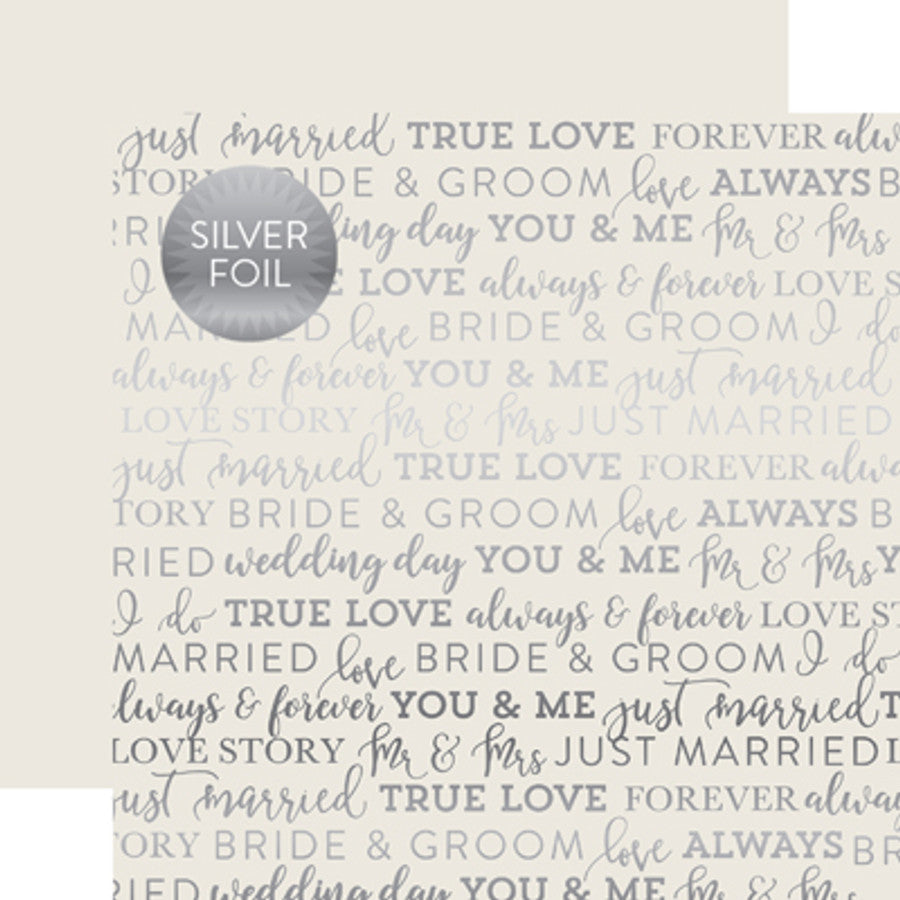 just married TRUE LOVE FOREVER alw
STORY BRIDE & GROOM love ALWAYS B
RRI ing day YOU & ME Mr & Mrs
SILVER
FOIL
I E LOVE always & forever LOVE S
MA ED love BRIDE & GROOM I do
always & forever YOU & ME just married
LOVE STORY Mr & Mrs JUST MARRIED
just married TRUE LOVE FOREVER alwa
TORY BRIDE & GROOM love ALWAYS B
RRIED wedding day YOU & ME Mr & Mrs Y
I do TRUE LOVE always & forever LOVE ST
MARRIED love BRIDE & GROOM I do
always & forever YOU & ME just married T
LOVE STORY Mr & Mrs JUST MARRIED L
just married TRUE LOVE FOREVER alway
TORY BRIDE & GROOM love ALWAYS BR
RIED wedding day YOU & ME Mr & Mrs